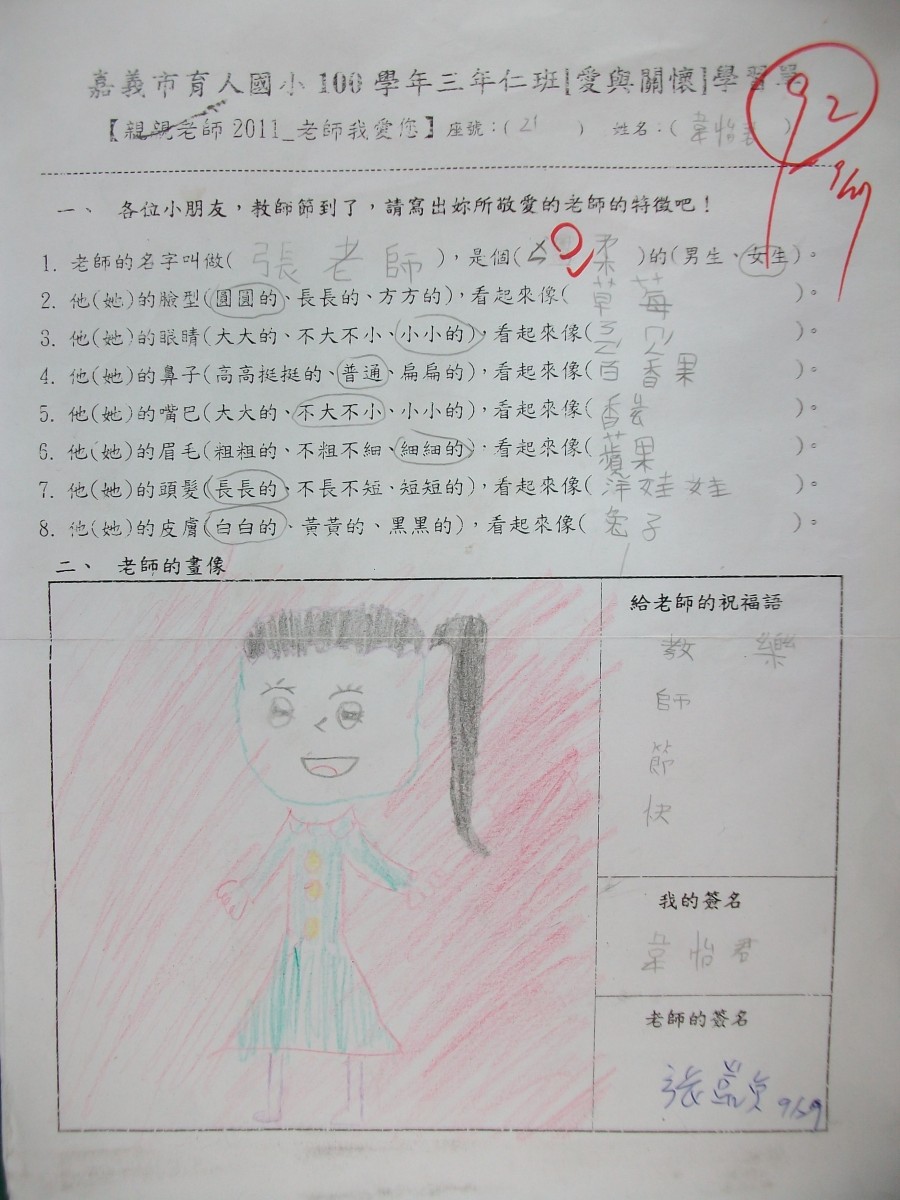 嘉義市育人國小100學年三年仁班[愛與關懷]學習單
92
9/29
【親親老師2011_老師我愛您】座號:(21) 姓名:(韋怡君)
一、 各位小朋友,教師節到了,請寫出妳所敬愛的老師的特徵吧!
1. 老師的名字叫做(張老師),是個( 柔)的(男生、女生)。
2. 他(她)的臉型(圓圓的、長長的、方方的),看起來像(草莓)。
3. 他(她)的眼睛(大大的、不大不小、小小的),看起來像( )。
4. 他(她)的鼻子(高高挺挺的、普通、扁扁的),看起來像(百香果)。
5. 他(她)的嘴巴(大大的、不大不小、小小的),看起來像(香 )。
6. 他(她)的眉毛(粗粗的、不粗不細、細細的),看起來像(蘋果)。
7. 他(她)的頭髮(長長的、不長不短、短短的),看起來像(洋娃娃)。
8. 他(她)的皮膚(白白的、黃黃的、黑黑的),看起來像(兔子)。
二、 老師的畫像
給老師的祝福語
教師節快樂
我的簽名
韋怡君
老師的簽名
張 9/29